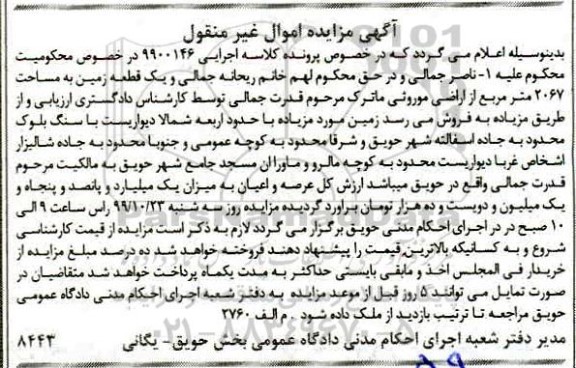 آگهی مزایده اموال غیر منقول
بدینوسیله اعلام می گردد که در خصوص پرونده کلاسه اجرایی ۹۹۰۰۱۴۶ در خصوص محکومیت
محکوم علیه ۱- ناصر جمالی و در حق محکوم لهم خانم ریحانه جمالی و یک قطعه زمین به مساحت
۲۰۶۷ متر مربع از اراضی موروثی ماترک مرحوم قدرت جمالی توسط کارشناس دادگستری ارزیابی و از
طریق مزایده به فروش می رسد زمین مورد مزیاده با حدود اربعه شمالا دیواریست با سنگ بلوک
محدود به جاده اسفالته شهر حویق و شرقا محدود به کوچه عمومی و جنوبا محدود به جاده شالیزار
اشخاص غربا دیواریست محدود به کوچه مالرو و ماورا ان مسجد جامع شهر حویق به مالکیت مرحوم
قدرت جمالی واقع در حویق میباشد ارزش کل عرصه و اعیان به میزان یک میلیارد و پانصد و پنجاه و
یک میلیون و دویست و ده هزار تومان براورد گردیده مزایده روز سه شنبه ۹۹/۱۰/۲۳ راس ساعت ۹ الی
۱۰ صبح در در اجرای احکام مدنی حویق برگزار می گردد لازم به ذکر است مزایده از قیمت کارشناسی
شروع و به کسانیکه بالاترین قیمت را پیشنهاد دهند فروخته خواهد شد ده درصد مبلغ مزایده از
خریدار فی المجلس اخذ و مابقی بایستی حداکثر به مدت یکماه پرداخت خواهد شد متقاضیان در
صورت تمایل می توانند ۵ روز قبل از موعد مزایده به دفتر شعبه اجرای احکام مدنی دادگاه عمومی
حویق مراجعه تا ترتیب بازدید از ملک داده شود . م الف ۲۷۶۰
مدیر دفتر شعبه اجرای احکام مدنی دادگاه عمومی بخش حویق - یگانی ۸۴۴۳